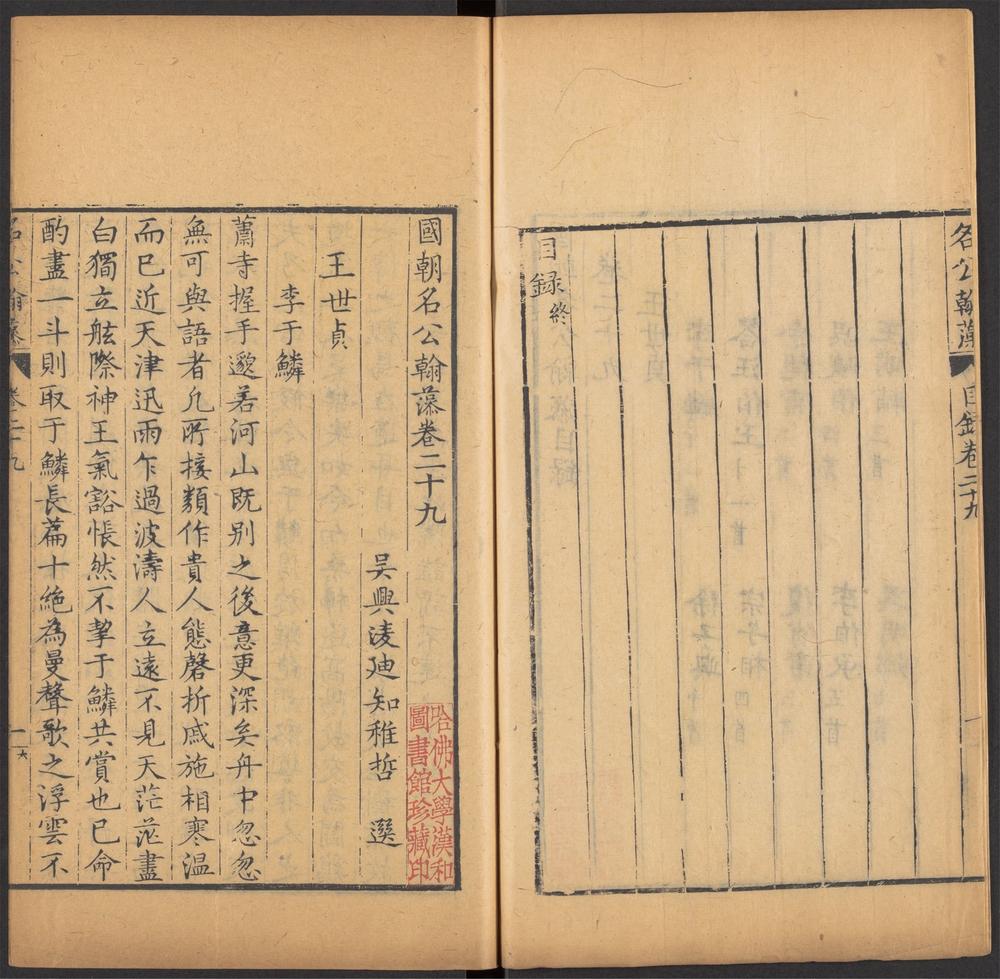 名公翰藻
目錄卷二十九
目錄終
國朝名公翰藻卷二十九
吴興凌迪知稚哲 選
哈佛大學漢和
圖書館珍藏印
王世貞
李于鱗
蕭寺握手邈若河山既别之後意更深矣舟中忽忽
無可與語者凢所接類作貴人態磬折戚施相寒温
而已近天津迅雨乍過波濤人立遠不見天茫茫盡
白獨立舷際神王氣豁悵然不挈于鱗共賞也已命
酌盡一斗則取于鱗長篇十絶為曼聲歌之浮雲不
名公翰藻
卷二十九
一